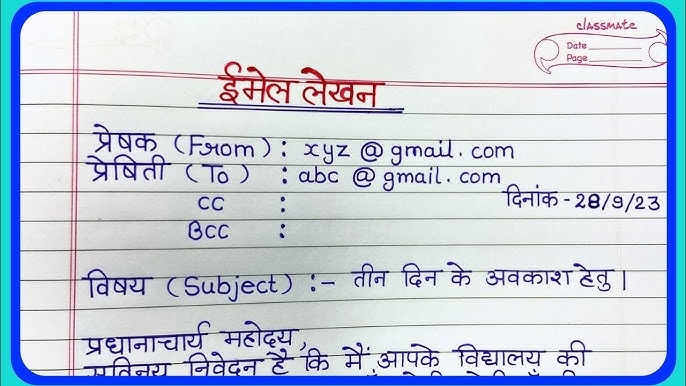 classmate
Date
Page
ईमेल लेखन
प्रेषक (From) : xyz @ gmail. com
प्रेषिती (To) : abc @ gmail. com
CC :
दिनांक - 28/9/23
BCC :
विषय (Subject) :- तीन दिन के अवकाश हेतु।
प्रधानाचार्य महोदय,
सविनय निवेदन है कि मैं आपके विद्यालय की